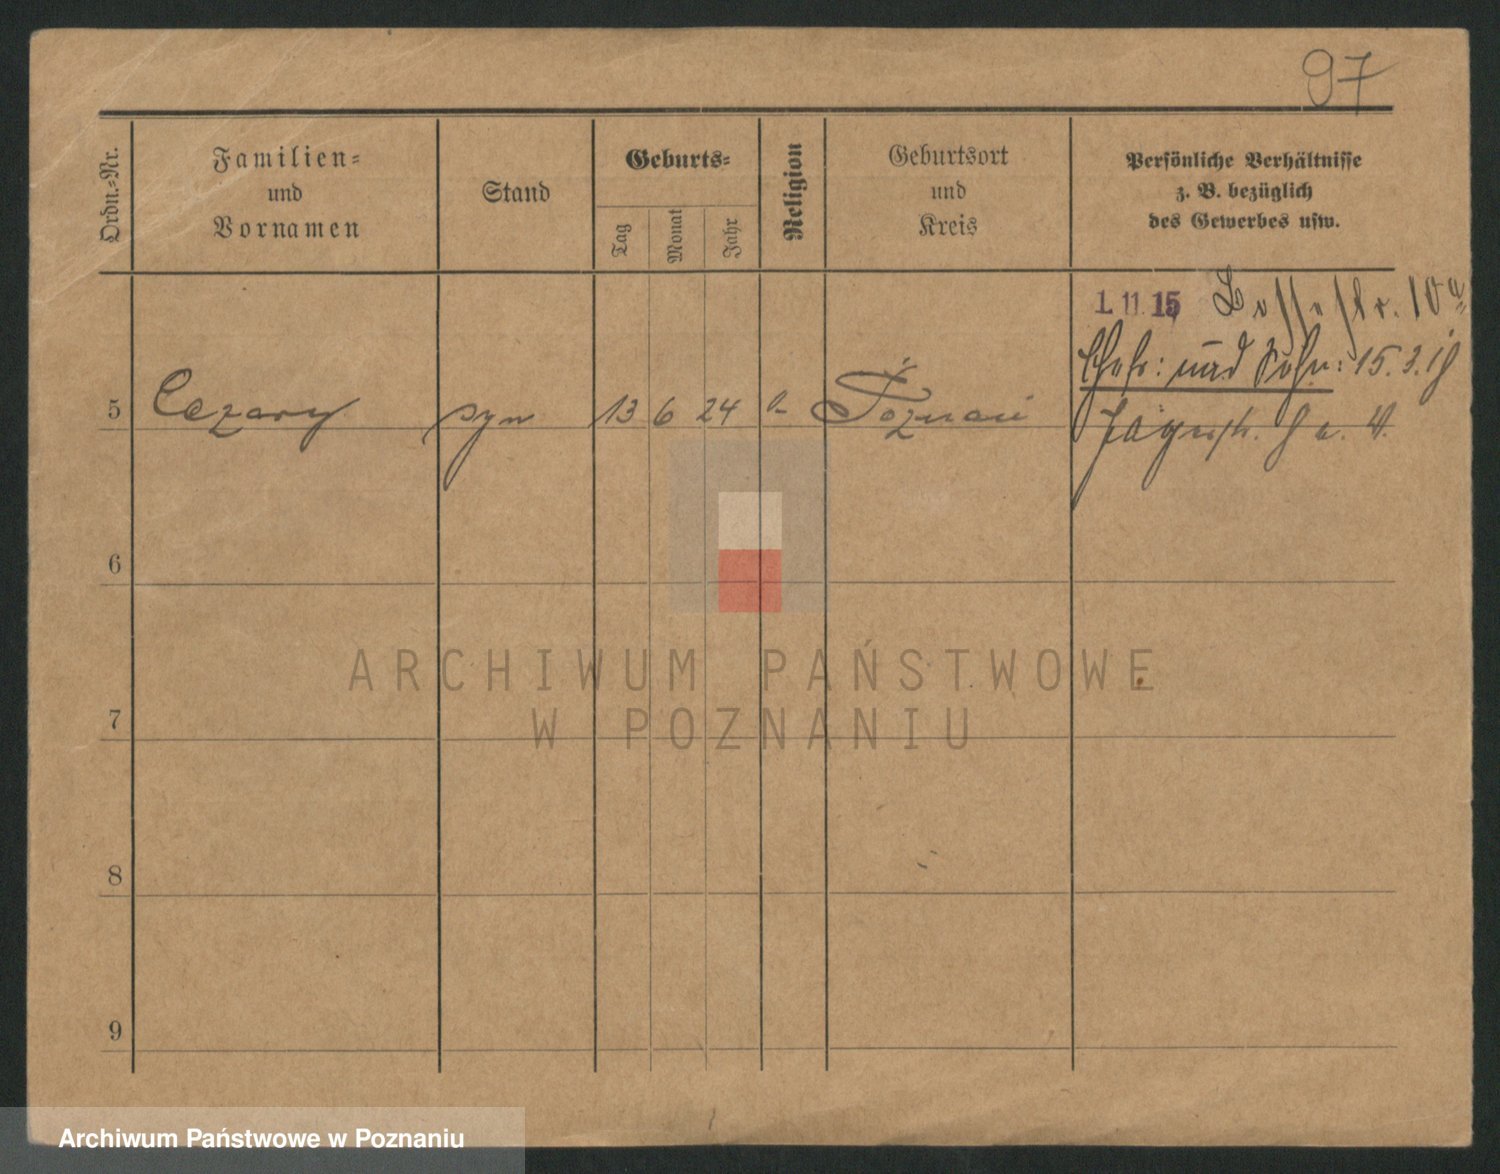 97
Ordn.-Nr.
Familien-
und
Vornamen
Stand
Geburts-
Tag
Monat
Jahr
Religion
Geburtsort
und
Kreis
Persönliche Verhältnisse
z. B. bezüglich
des Gewerbes usw.
1.11.15 10a
Ehefr: und Sohn: 15.3.18
5 Cezary syn 13 6 24 Poznań Jägerstr.
6
7
8
9
ARCHIWUM PAŃSTWOWE
W POZNANIU
Archiwum Państwowe w Poznaniu